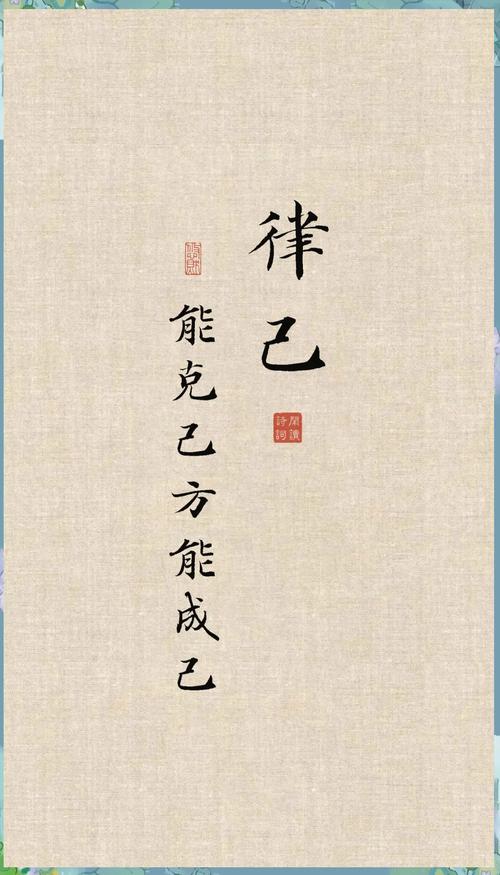 律己
閑讀詩詞
能克己方能成己